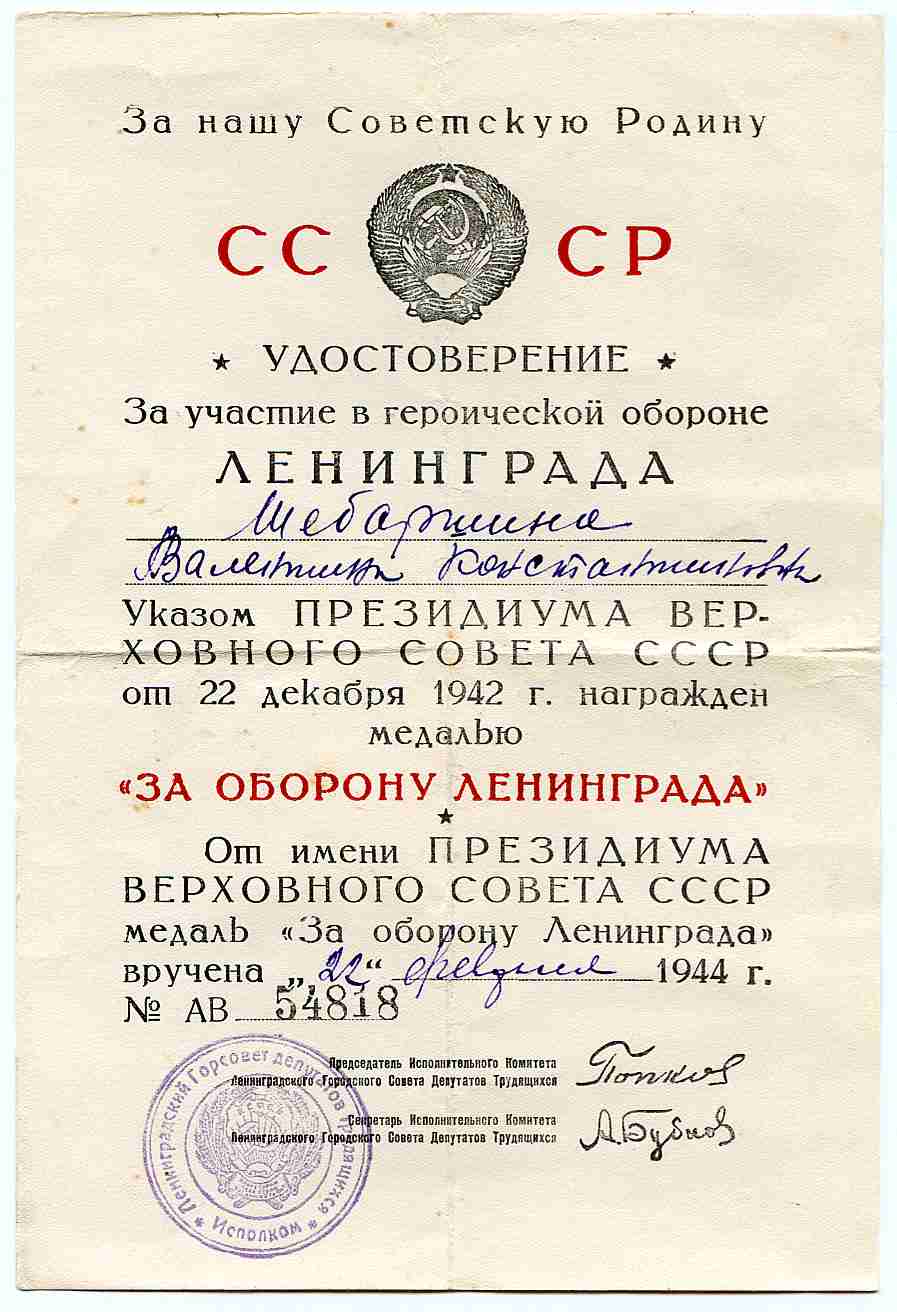 За нашу Советскую Родину
СС СР
★ УДОСТОВЕРЕНИЕ ★
За участие в героической обороне
ЛЕНИНГРАДА
Шебаршина
Валентина Константиновна
Указом ПРЕЗИДИУМА ВЕР-
ХОВНОГО СОВЕТА СССР
от 22 декабря 1942 г. награжден
медалью
«ЗА ОБОРОНУ ЛЕНИНГРАДА»
★
От имени ПРЕЗИДИУМА
ВЕРХОВНОГО СОВЕТА СССР
медаль «За оборону Ленинграда»
вручена „22“ февраля 1944 г.
№ АВ 54818
Председатель Исполнительного Комитета
Ленинградского Городского Совета Депутатов Трудящихся
Попков
Секретарь Исполнительного Комитета
Ленинградского Городского Совета Депутатов Трудящихся
А.Бубнов
Ленинградский Горсовет депутатов трудящихся
★ Исполком ★